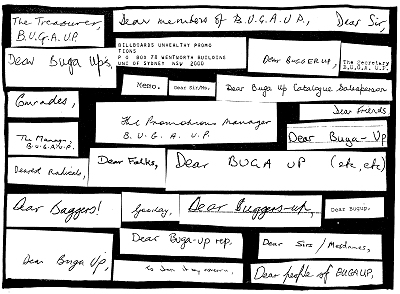 The Treasurer,
B.U.G.A UP.
Dear members of B.U.G.A U.P,
Dear Sir,
Dear Buga Up's,
BILLBOARDS UNHEALTHY PROMO
TIONS
P O BOX 78 WENTWORTH BUILDING
UNI OF SYDNEY NSW 2000
Dear BUGGER UP,
The Secretary
B.U.G.A. U.P.
Memo.
Dear Sir/Ms,
Dear Buga Up Catalogue Salesperson
Comrades,
Dear Friends
The Promotions Manager
B.U.G.A. U.P.
The Manager,
B.U.G.A.U.P.
Dear Buga-Up
Dear Folks,
Dear BUGA UP (etc, etc)
Dearest Radicals,
Dear Baggers!
Gooday,
Dear Buggers-up,
Dear Bugup,
Dear Buga-up rep,
Dear Sirs / Mesdames,
Dear Buga Up,
To whom it may concern,
Dear people of BUGAUP,